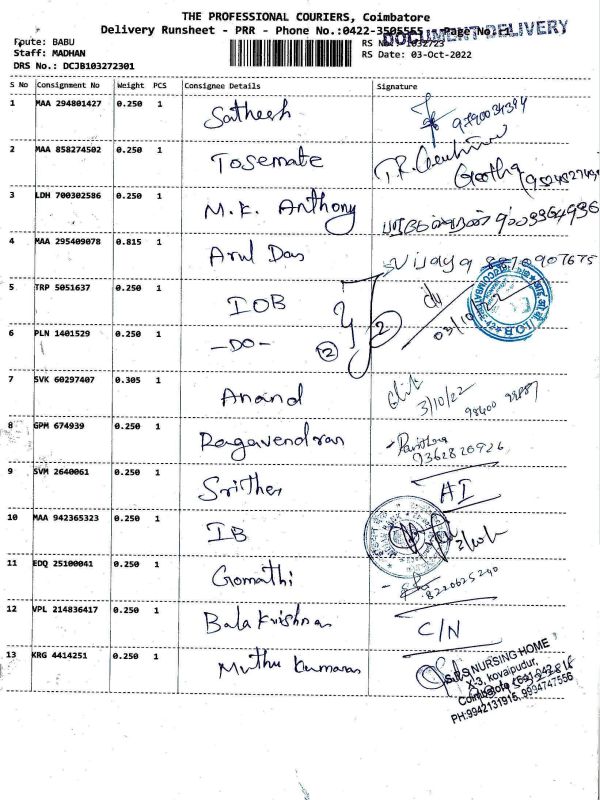 THE PROFESSIONAL COURIERS, Coimbatore
Delivery Runsheet - PRR - Phone No.:0422-3505555 Page No.:1
DOCUMENT DELIVERY
Route: BABU
RS No: 1032723
Staff: MADHAN
RS Date: 03-Oct-2022
DRS No.: DCJB103272301
S No Consignment No Weight PCS Consignee Details Signature
1 MAA 294801427 0.250 1 Satheesh 9790034394
2 MAA 858274502 0.250 1 Tosemate
Geetha
3 LDH 700302586 0.250 1 M.K. Anthony 9003364936
4 MAA 295409078 0.815 1 Arul Das Vijaya 8870907675
5 TRP 5051637 0.250 1 IOB 03/10/22
6 PLN 1401529 0.250 1 -DO- 2 2
7 SVK 60297407 0.305 1 Anand
3/10/22
8 GPM 674939 0.250 1 Ragavendran
7362820926
9 SVM 2640061 0.250 1 Srither AI
10 MAA 942365323 0.250 1 IB
11 EDQ 25100041 0.250 1 Gomathi 8220625240
12 VPL 214836417 0.250 1 Balakrishnan C/N
13 KRG 4414251 0.250 1 Muthu Kumaran
S.P.S NURSING HOME
X-3, kovaipudur,
Coimbatore
PH:9942131915, 9994747556